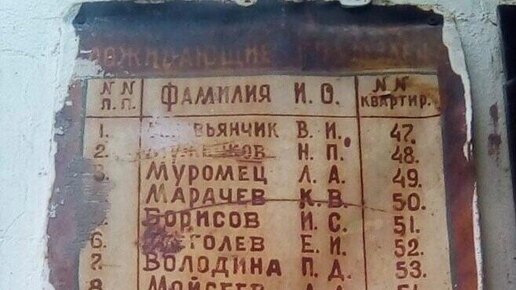 N N П.П. ФАМИЛИЯ И. О. N N КВАРТИР.
1. В. И. 47.
2. Н. П. 48.
3. МУРОМЕЦ Л. А. 49.
МАРАЧЕВ К. В. 50.
БОРИСОВ И. С. 51.
6. Е. И. 52.
7. ВОЛОДИНА П. Д. 53.
8. МОЙСЕЕВ